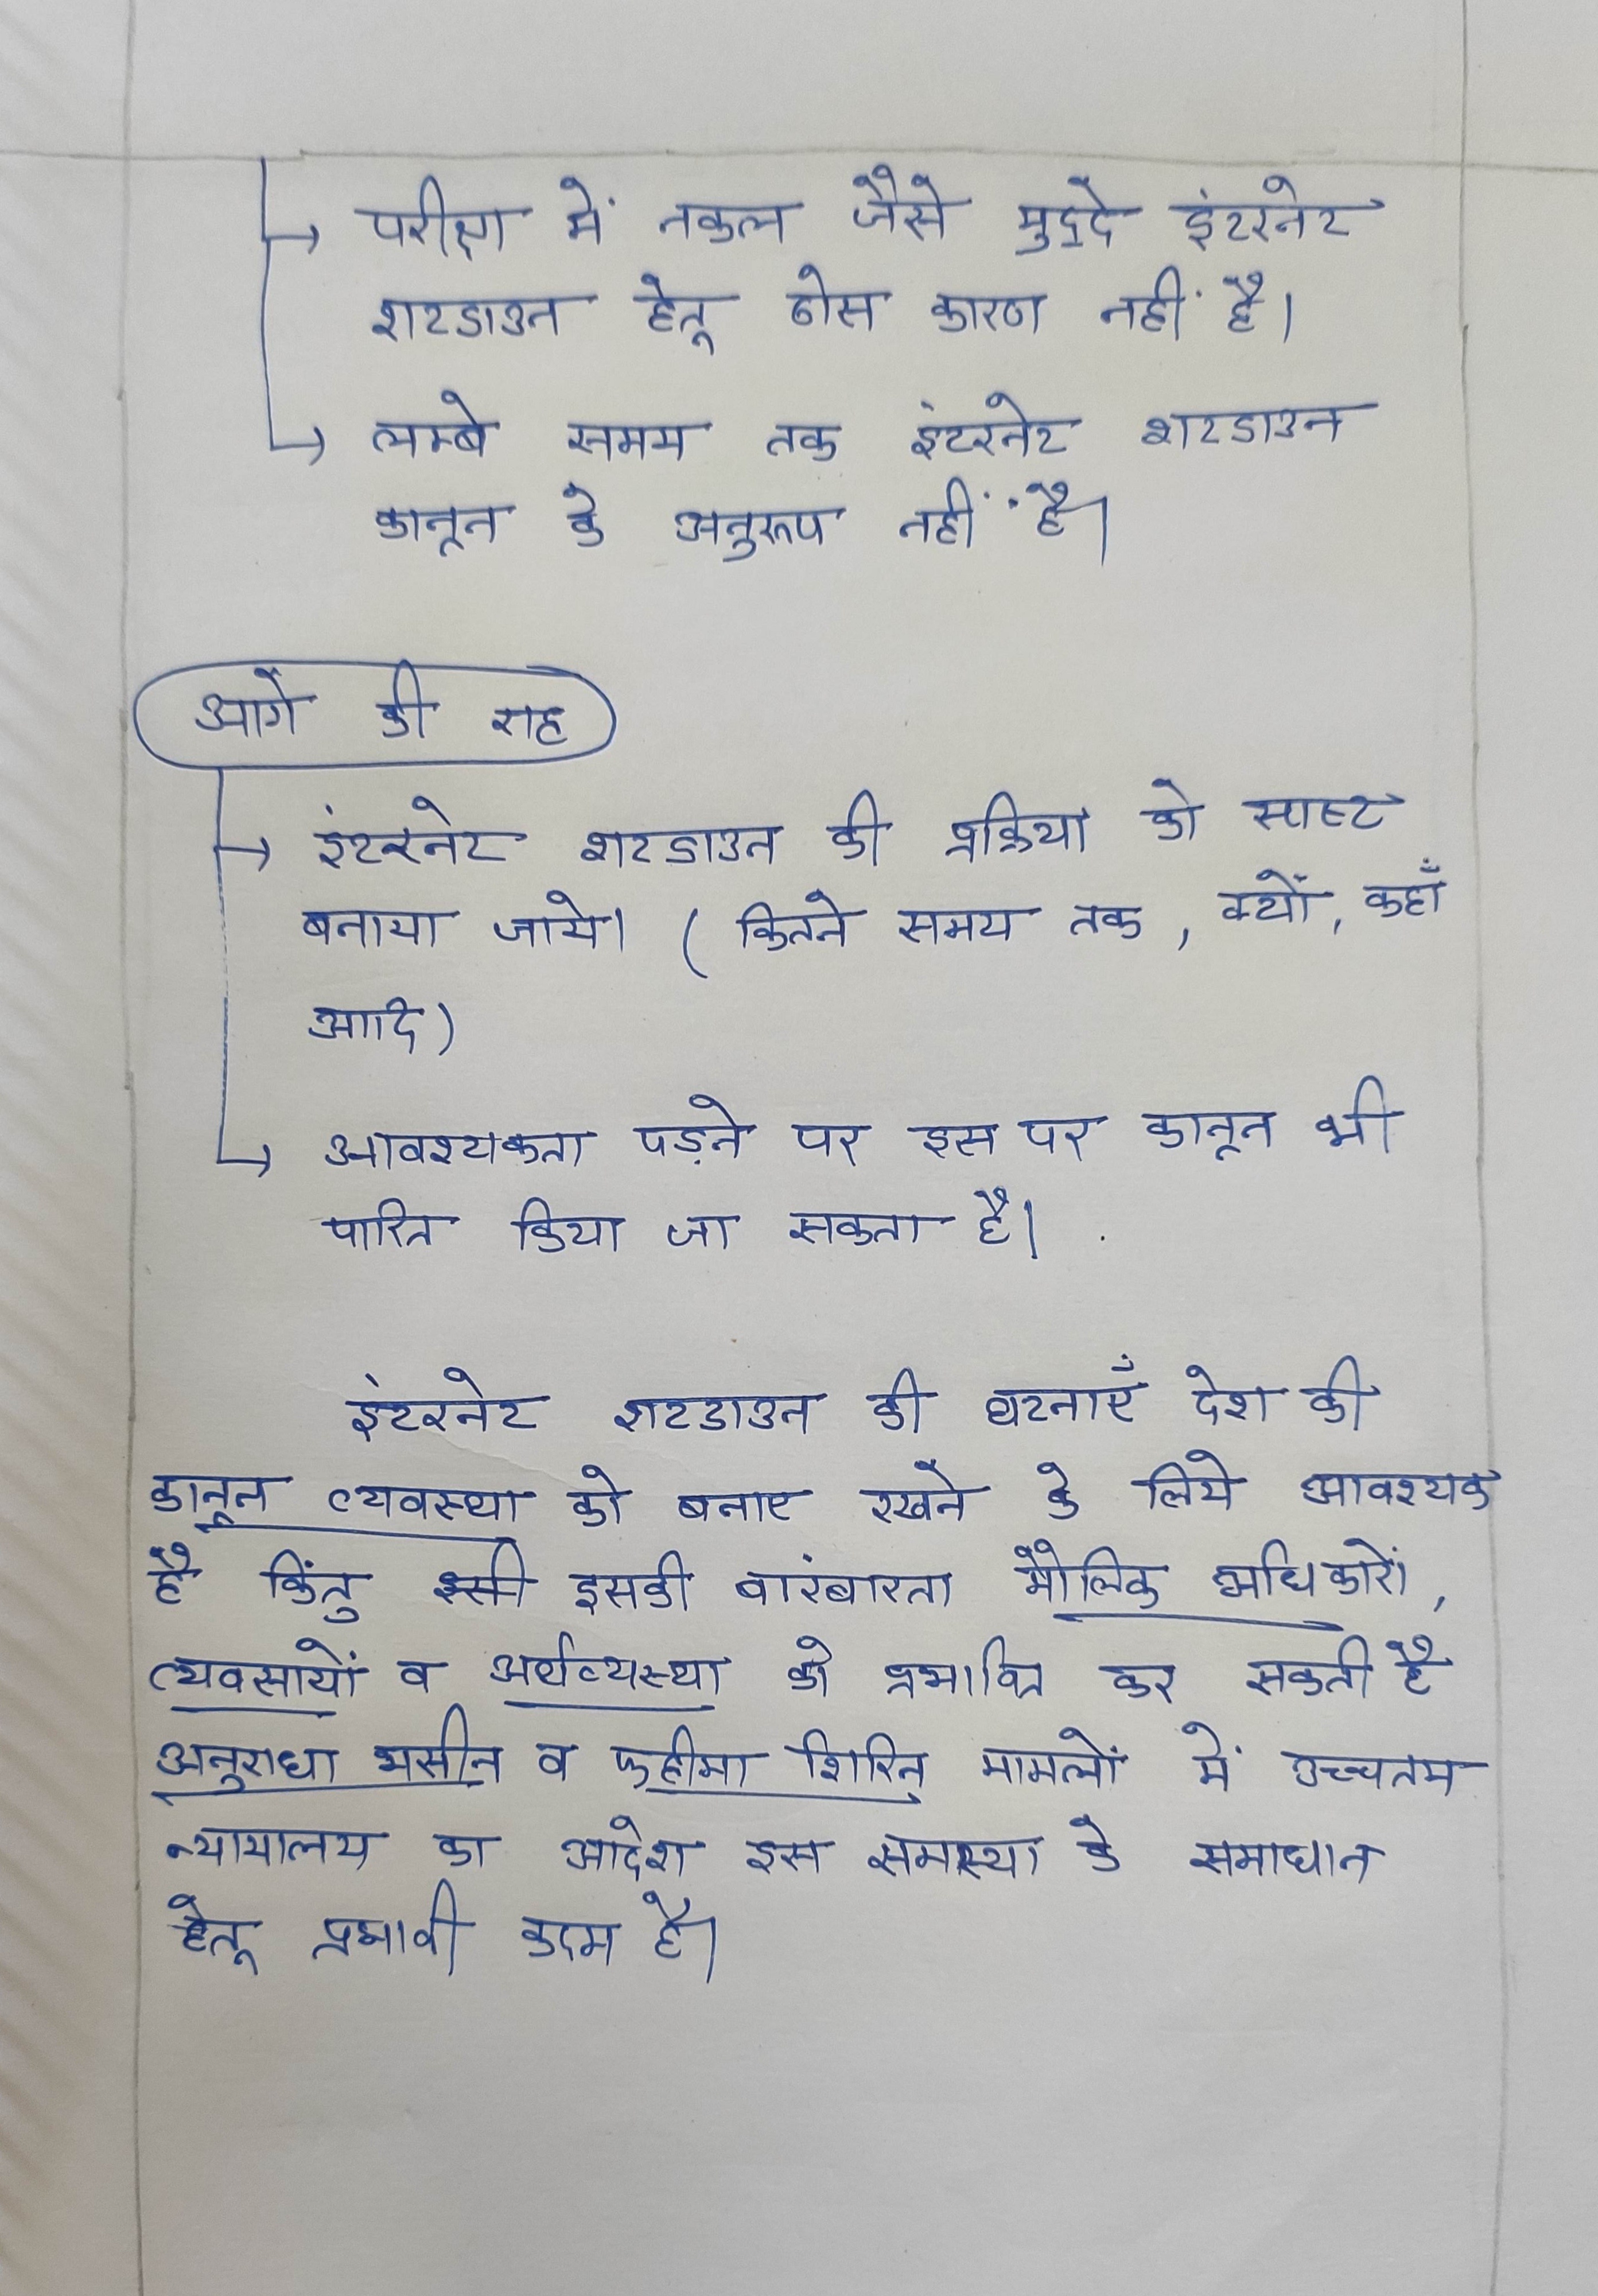 → परीक्षा में नकल जैसे मुद्दे इंटरनेट
शटडाउन हेतू ठोस कारण नहीं है।
→ लम्बे समय तक इंटरनेट शटडाउन
कानून के अनुरूप नहीं है।
आगे की राह
→ इंटरनेट शटडाउन की प्रक्रिया को स्पष्ट
बनाया जाये। ( कितने समय तक , क्यों, कहाँ
आदि)
→ आवश्यकता पड़ने पर इस पर कानून भी
पारित किया जा सकता है।
इंटरनेट शटडाउन की घटनाएँ देश की
कानून व्यवस्था को बनाए रखने के लिये आवश्यक
है किंतु इसकी बारंबारता मौलिक अधिकारों ,
व्यवसायों व अर्थव्यस्था को प्रभावित कर सकती है
अनुराधा भसीन व फहीमा शिरिन मामलों में उच्चतम
न्यायालय का आदेश इस समस्या के समाधान
हेतू प्रभावी कदम है।